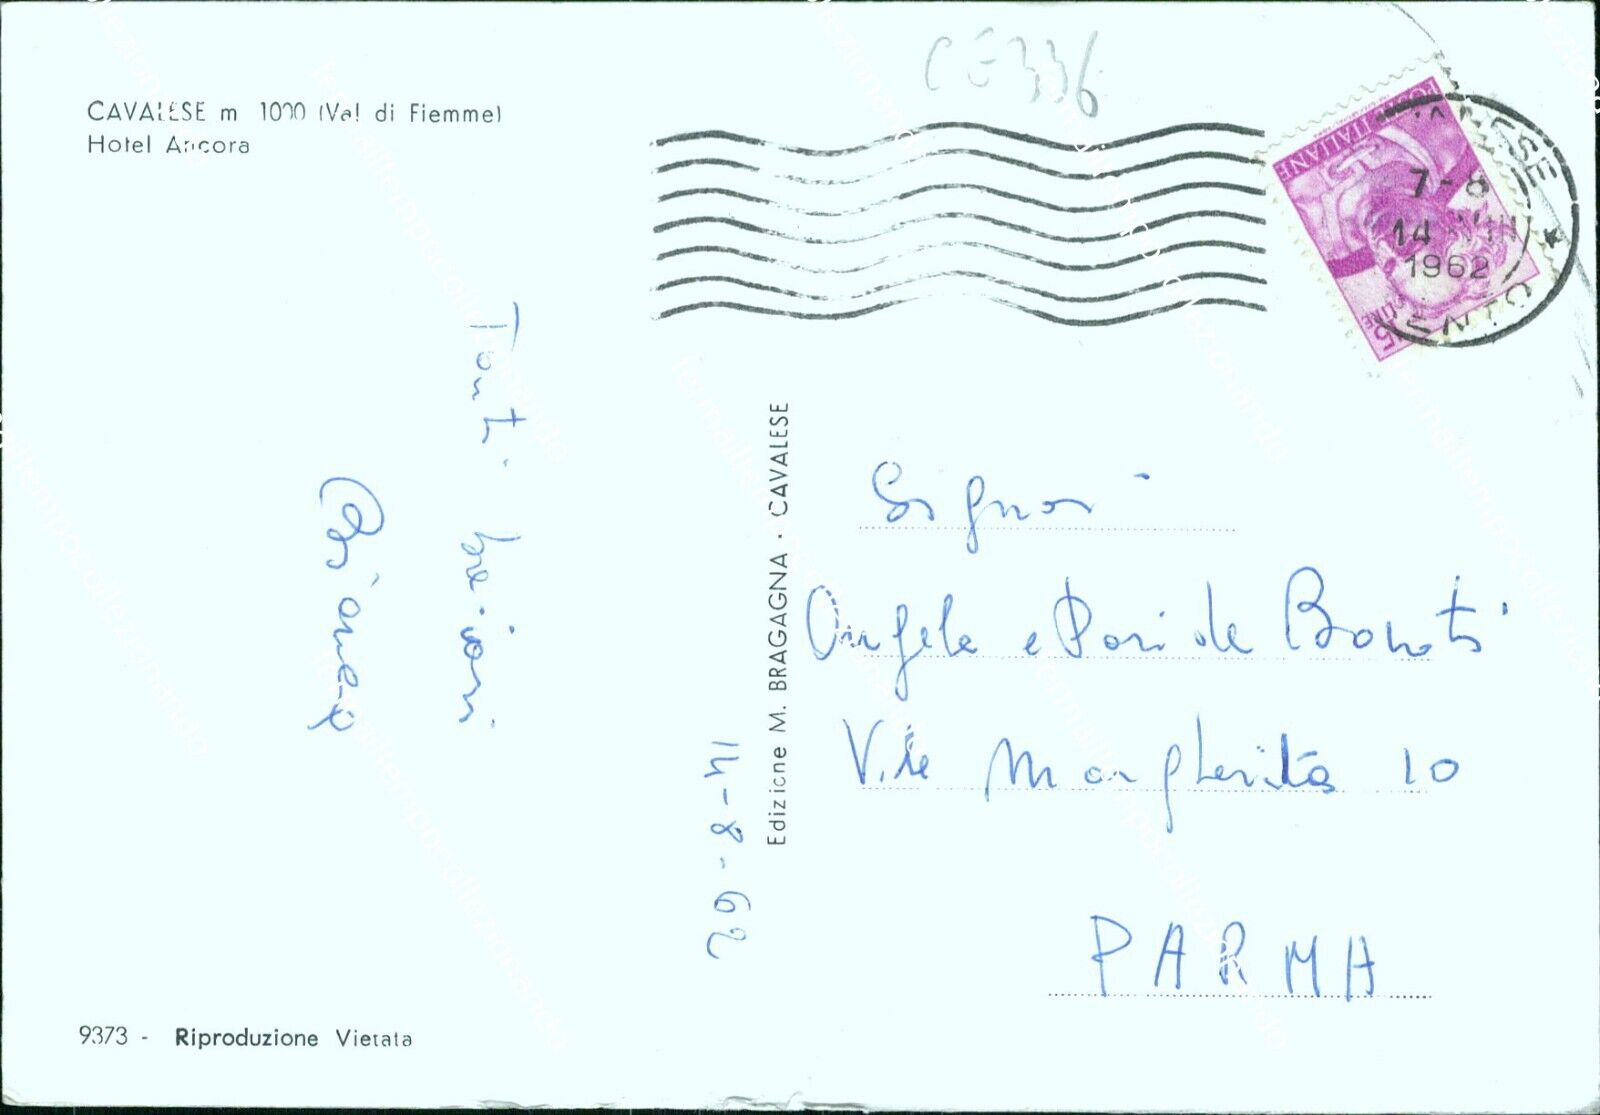 CE336
CAVALESE m 1000 (Val di Fiemme)
Hotel Ancora
POSTE ITALIANE
LIRE 15
CAVALESE
7-8
14 VIII
1962
Tanti
bacioni
14-8-62
Edizione M. BRAGAGNA · CAVALESE
Signori
Angela e Paride Bonati
V.le Margherita 10
PARMA
9373 - Riproduzione Vietata